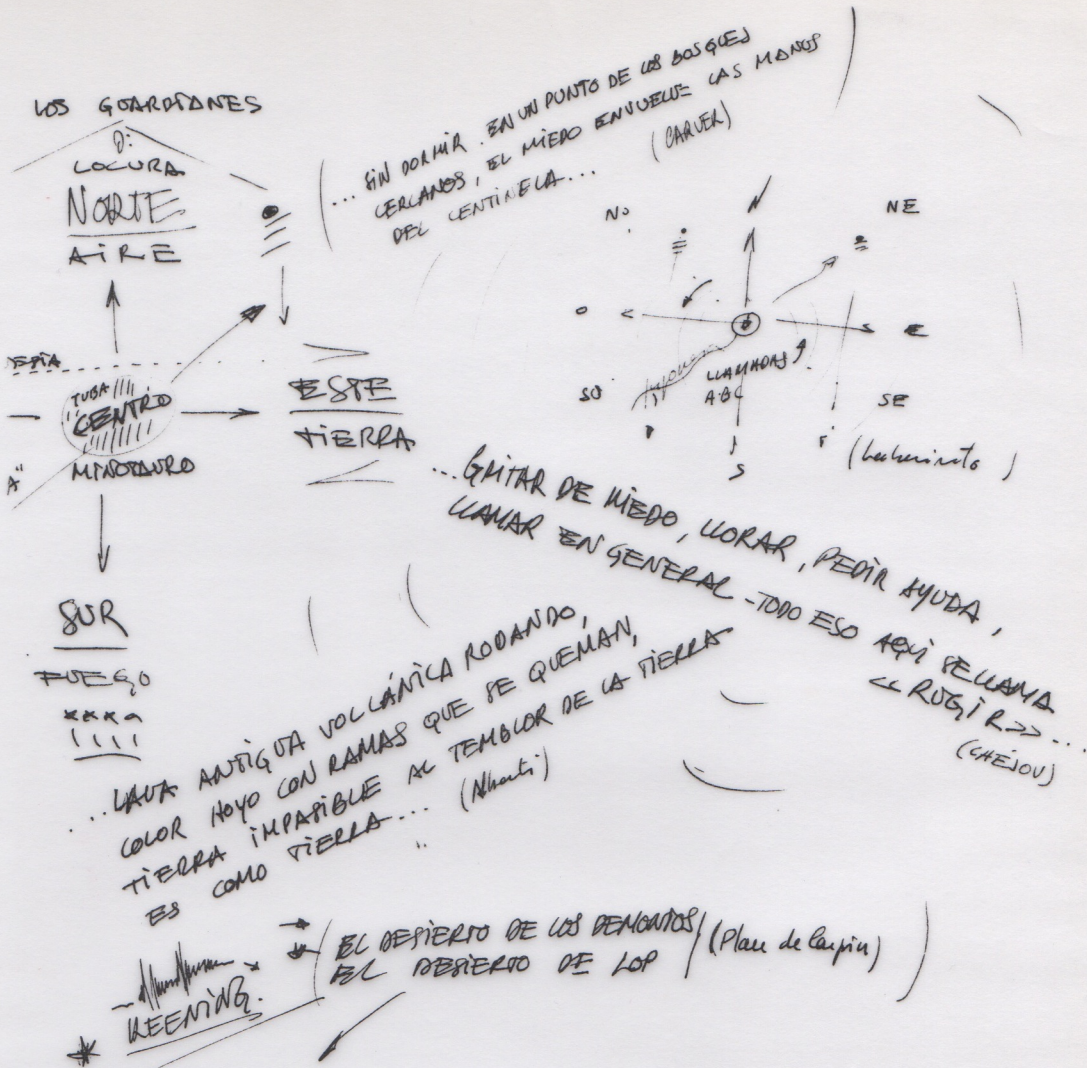 LOS GUARDIANES
D:
LOCURA
NORTE
AIRE
TUBA
CENTRO
MINOTAURO
ESTE
TIERRA
SUR
FUEGO
... SIN DORMIR. EN UN PUNTO DE LOS BOSQUES
CERCANOS, EL MIEDO ENVUELVE LAS MANOS
DEL CENTINELA... (CARVER)
N
NO
NE
O
E
LLAMADAS
ABC
SO
SE
S
... GRITAR DE MIEDO, LLORAR, PEDIR AYUDA,
LLAMAR EN GENERAL - TODO ESO AQUÍ SE LLAMA
<< RUGIR >> ...
(CHÉJOV)
... LAVA ANTIGUA VOLCÁNICA RODANDO,
COLOR HOYO CON RAMAS QUE SE QUEMAN,
TIERRA IMPASIBLE AL TEMBLOR DE LA TIERRA
ES COMO TIERRA... (Alberti)
EL DESIERTO DE LOS DEMONIOS
EL DESIERTO DE LOP (Plan de Carpin)
* KEENING.